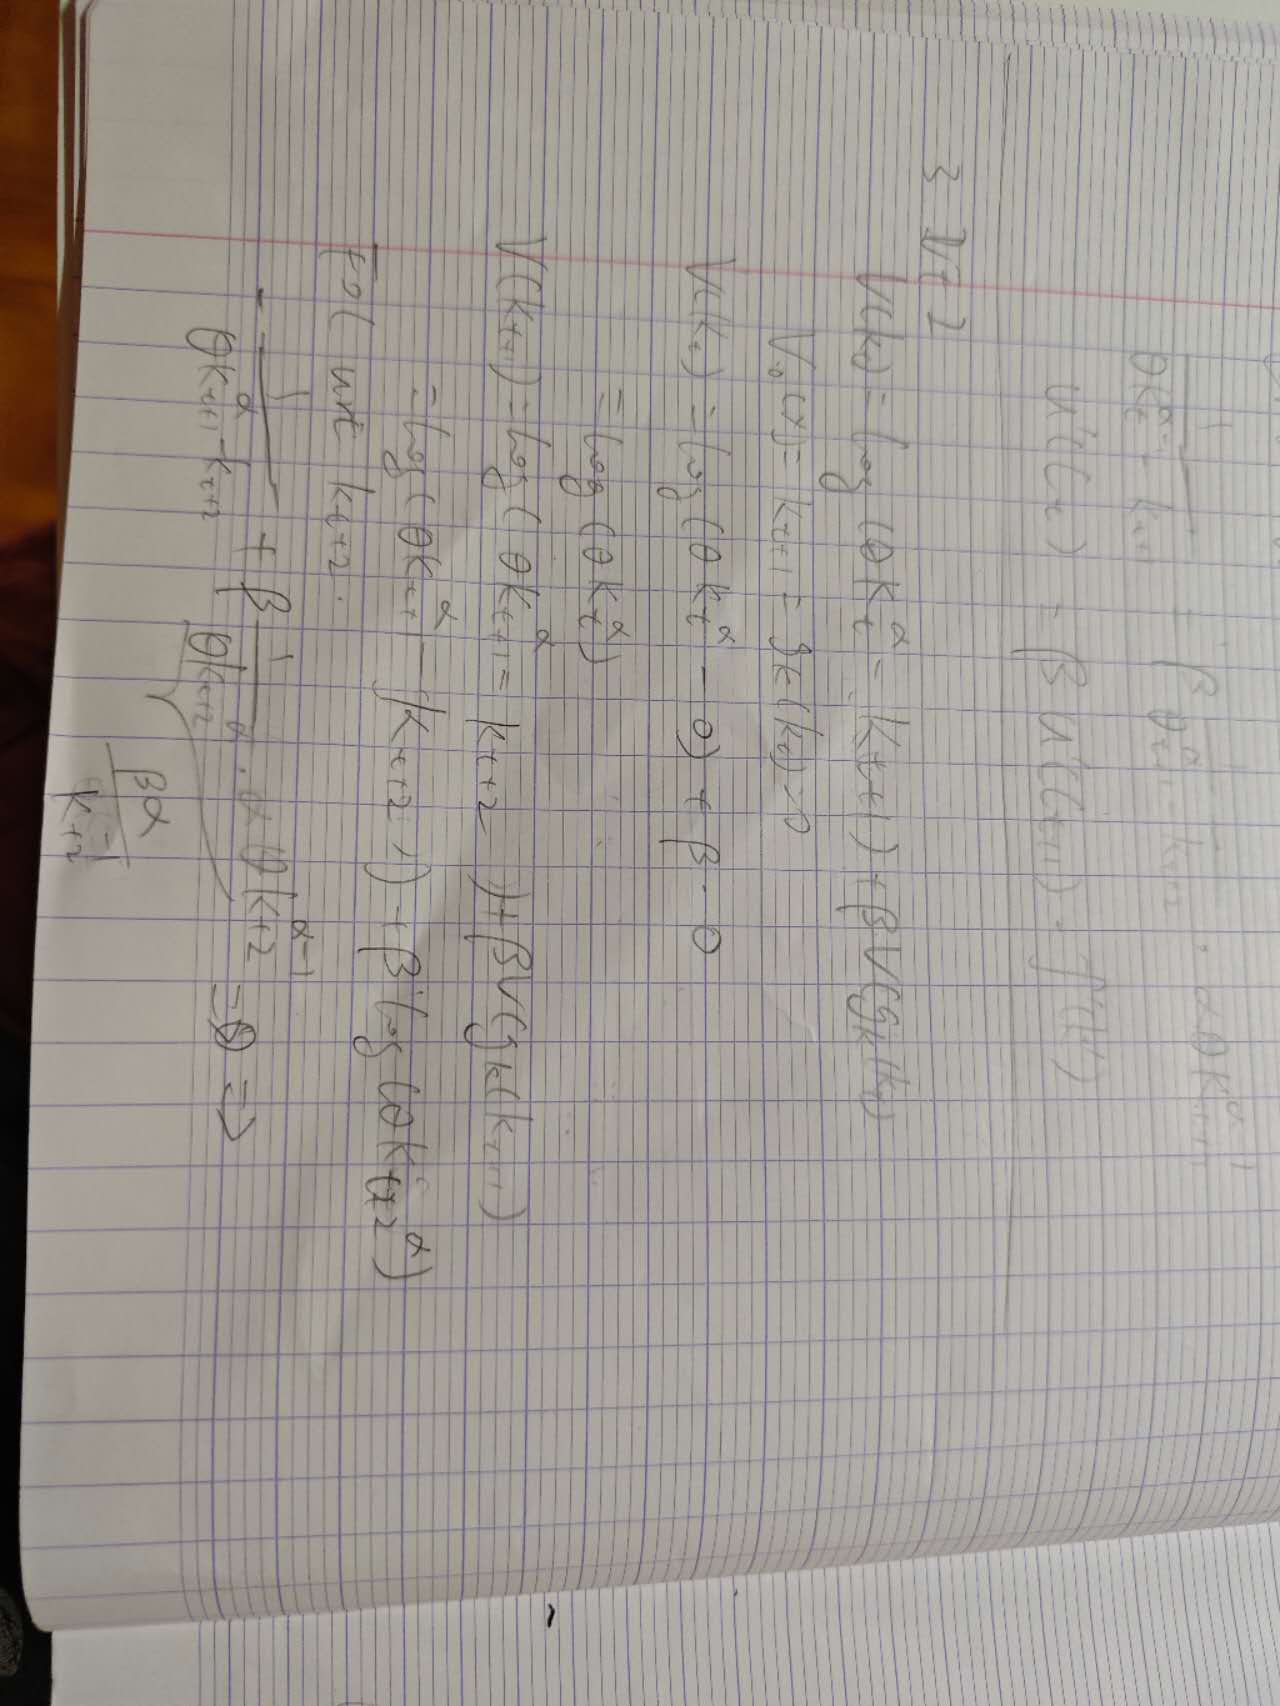 1 / (θk_t^α - k_{t+1}) = β 1 / (θ_{t+1}^α - k_{t+2}) · αθk_{t+1}^{α-1}
u'(c_t) = β u'(c_{t+1}) · f'(k')
3 Vt2
V(k_t) = log (θk_t^α - k_{t+1}) + βV(g_k(k_t))
V_0(x) = k_{t+1} = g_k(k_t) = 0
V(k_t) = log (θk_t^α - 0) + β · 0
= log (θk_t^α)
V(k_{t+1}) = log (θk_{t+1}^α = k_{t+2}) + βV(g_k(k_{t+1})
= log (θk_{t+1}^α - k_{t+2}) + β log (θk_{t+2}^α)
FOC wrt k_{t+2}.
- 1 / (θk_{t+1}^α - k_{t+2}) + β 1 / (θk_{t+2}^α) · αθk_{t+2}^{α-1} = 0 =>
βα / k_{t+2}